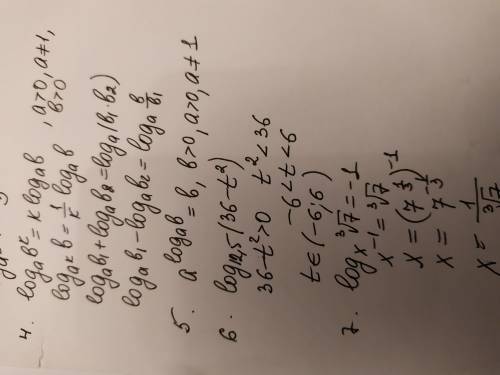 4. logₐbᵏ = k logₐb , a>0, a≠1,
b>0
logₐᵏ b = 1/k logₐ b
logₐb₁ + logₐb₂ = logₐ(b₁·b₂)
logₐ b₁ - logₐb₂ = logₐ b/b₁
5. a^logₐb = b, b>0, a>0, a≠1
6. log₁₂,₅(36-t²)
36-t²>0 t²<36
-6<t<6
t∈(-6;6)
7. logₓ ³√7 = -1
x⁻¹ = ³√7
x = (7^1/3)⁻¹
x = 7^-1/3
x = 1/³√7